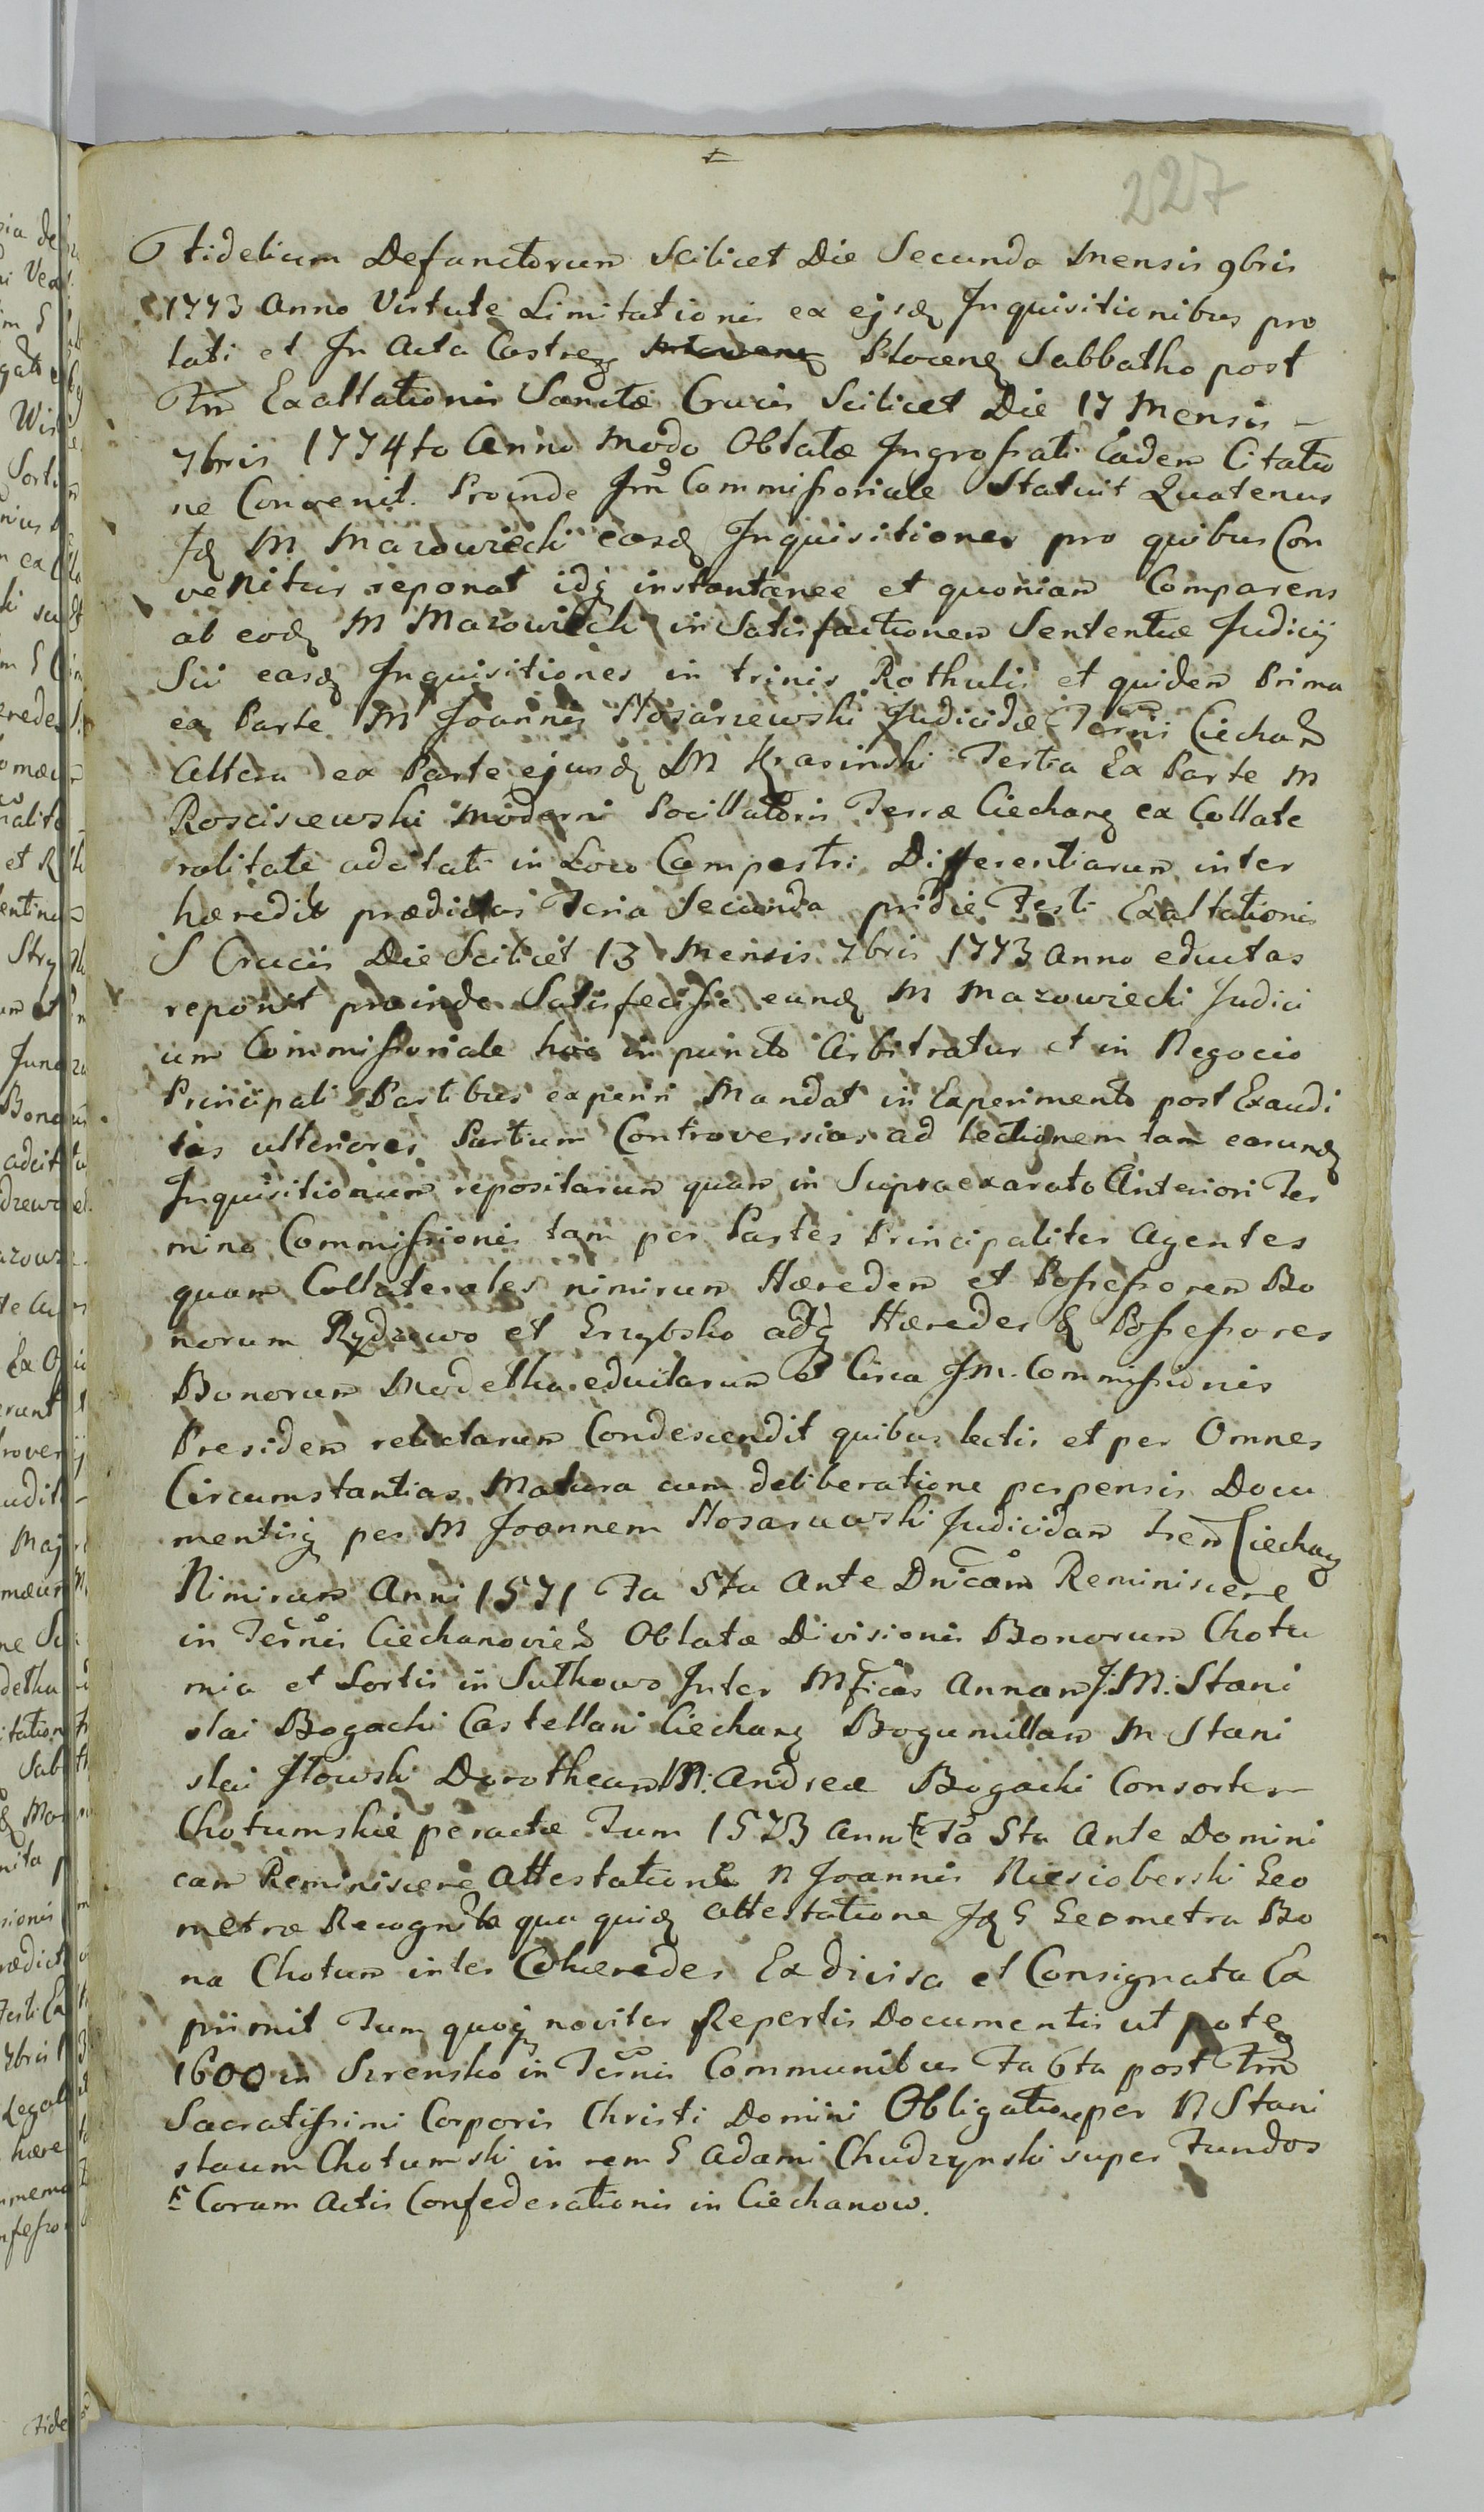 227
Fidelium Defunctorum Scilicet Die Secunda Mensis 9bris
1773 Anno Virtute Limitationis ex ejsdꝫ Inquisitionibus pro
lati et In Acta Castreꝫ Plocenꝫ Sabbatho post
Ftm Exaltationis Sanctæ Crucis Scilicet Die 17 Mensis –
7bris 1774to Anno modo Oblatæ Ingrossati Eadem Citatio
ne Convenit. Proinde Jm Commissoriale Statuit Quatenus
Idꝫ M Mazowiecki easdꝫ Inquisitiones pro quibus Con
venitur reponat idqꝫ instantanee et quoniam Comparens
ab eodꝫ M Mazowiecki in Satisfactionem Sententiæ Judicij
Sui easdꝫ Inquisitiones in trinis Rothulis et quidem Prima
ex Parte M Joannis Nosarzewski Judicidæ Terris Ciechan
Altera ex Parte ejusdꝫ M Krasinski Tertia Ex Parte M
Rosciszewski moderni Pocillatoris Terræ Ciechanꝫ ex Collate
ralitate adcitati in Loco Campestri Differentiarum inter
hæredit prædictas Feria Secunda pridie Festi Exaltationis
S Crucis Die Scilicet 13 Mensis 7bris 1773 Anno eductas
reponit proinde Satisfecisse eundꝫ M Mazowiecki Judici
um Commissoriale hoc in puncto Arbitratur et in Negocio
Principali Partibus experiri Mandat in Experimento post Exaudi
tas ulteriores Partium Controversias ad lectionem tam earundꝫ
Inquisitionum repositarum quam in Supraexarato Anteriori Ter
mino Commissionis tam per Partes Principaliter Agentes
quam Collaterales nimirum Hæredem et Possessorem Bo
norum Rydzewo et Grzybsko adqꝫ Hæredes & Possessores
Bonorum Modelka eductarum et Circa JM. Commissionis
Presidem relictarum Condescendit quibus lectis et per Omnes
Circumstantias Matura cum deliberatione perpensis Docu
mentisqꝫ per M Joannem Nosarzewski Judicidam Tren Ciechanꝫ
Nimirum Anni 1571 Fa 5ta Ante Dnicam Reminiscere
in Terris Ciechanovien Oblatæ Divisionis Bonorum Chotu
mia et Sortis in Sulkowo Inter Mficas Annam J.M. Stani
slai Bogacki Castellani Ciechanꝫ Bogumillam M Stani
slai Ilowski Dorotheam M. Andreæ Bogacki Consortes
Chotumskie peractæ Tum 1573 Anni Fa 5ta Ante Domini
cam Reminiscere Attestatione N Joannis Niesioberski Geo
metræ Recognita qua quidꝫ Attestatione Idꝫ G Geometra Bo
na Chotum inter Cohæredes Ex divisa et Consignata Ex
primit Tum quoqꝫ noviter Repertis Documentis ut pote
1600 in Szrensko in Terris Communibus Fa 6ta post Ftm
Sacratissimi Corporis Christi Domini Obligatione per N Stani
slaum Chotumski in rem G Adami Chudzynski super Fundos
Coram Actis Confederationis in Ciechanow.